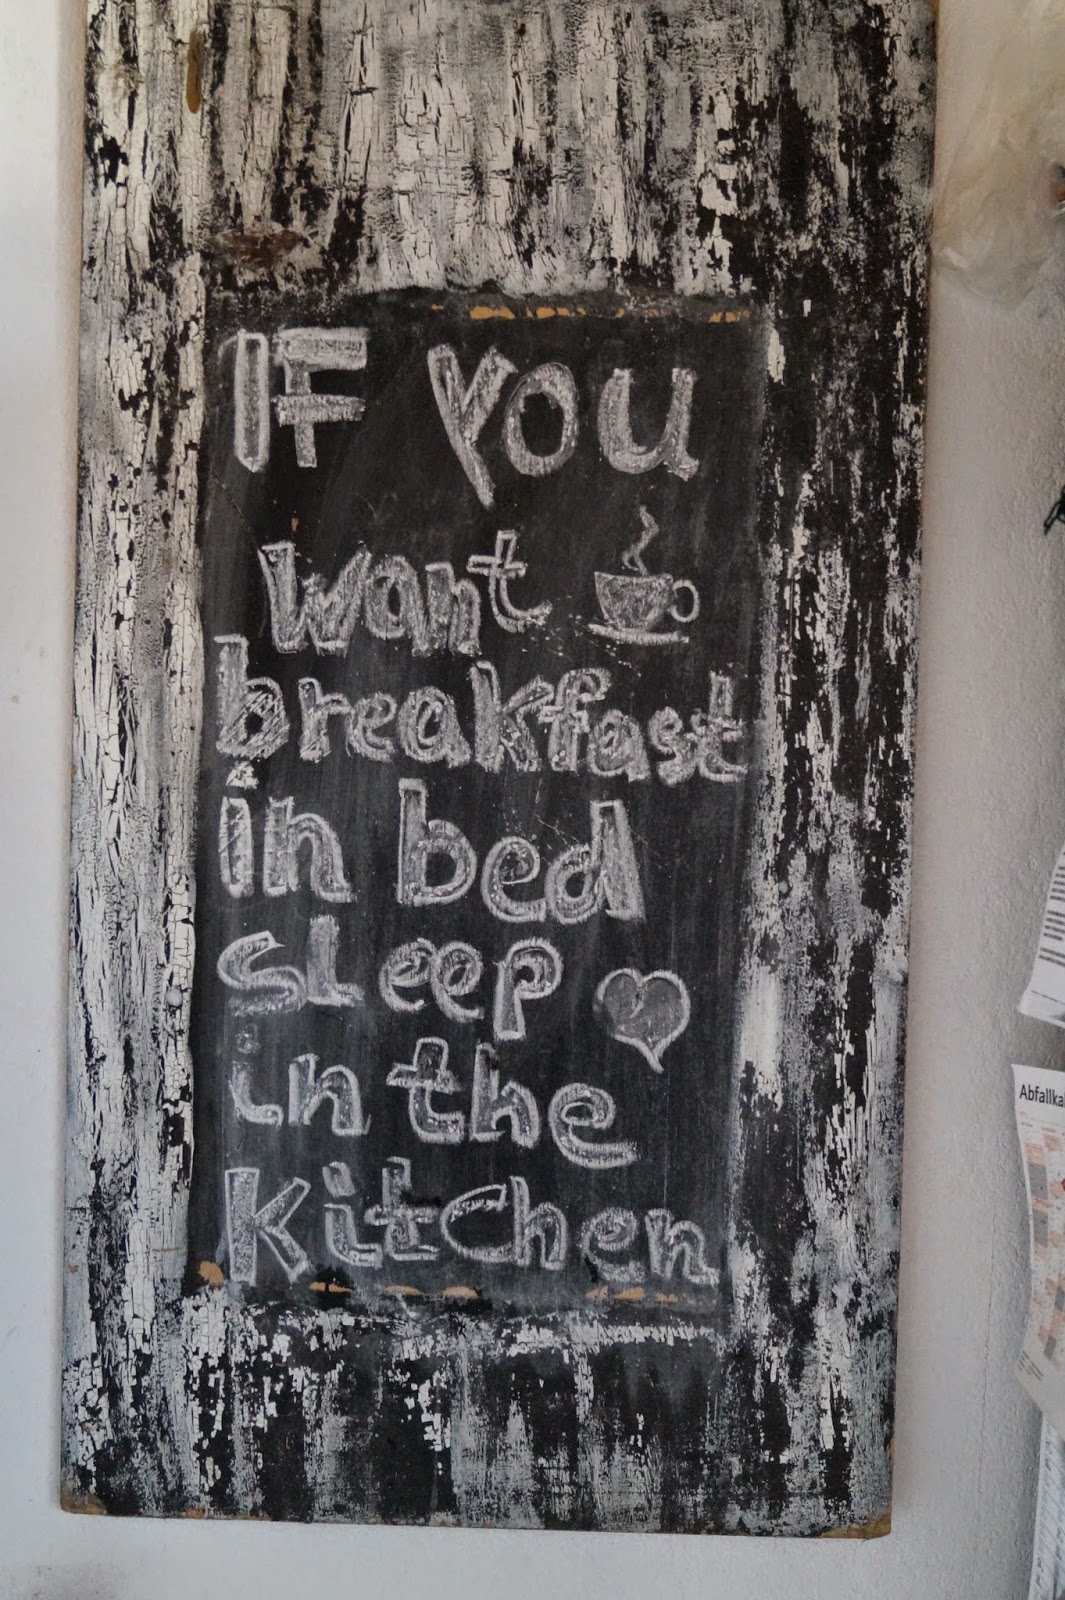 IF you
want
breakfast
in bed
sleep
in the
Kitchen
Abfallka